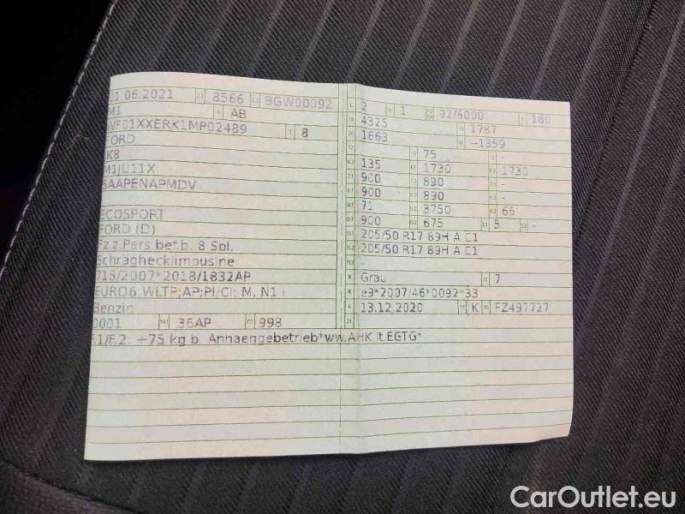 01.06.2021 8566 BGW00092
M1 AB
WF01XXERK1MP02489 8
FORD
JK8
M1JU11X
5AAPENAPMDV
ECOSPORT
FORD (D)
Fz.z.Pers.bef.b. 8 Spl.
Schräghecklimousine
715/2007*2018/1832AP
EURO6;WLTP;AP;PI/CI; M, N1 I
Benzin
0001 36AP 998
F.1/F.2: +75 kg b. Anhängebetrieb*ww.AHK lt.EGTG*
2 1 92/6000 180
4325 1787
1663 -1359
75
135 1730 1730
900 890 -
900 890 -
71 3750 66
900 675 5 -
205/50 R17 89H A C1
205/50 R17 89H A C1
-
Grau 7
e3*2007/46*0092*33
13.12.2020 K FZ497727
CarOutlet.eu